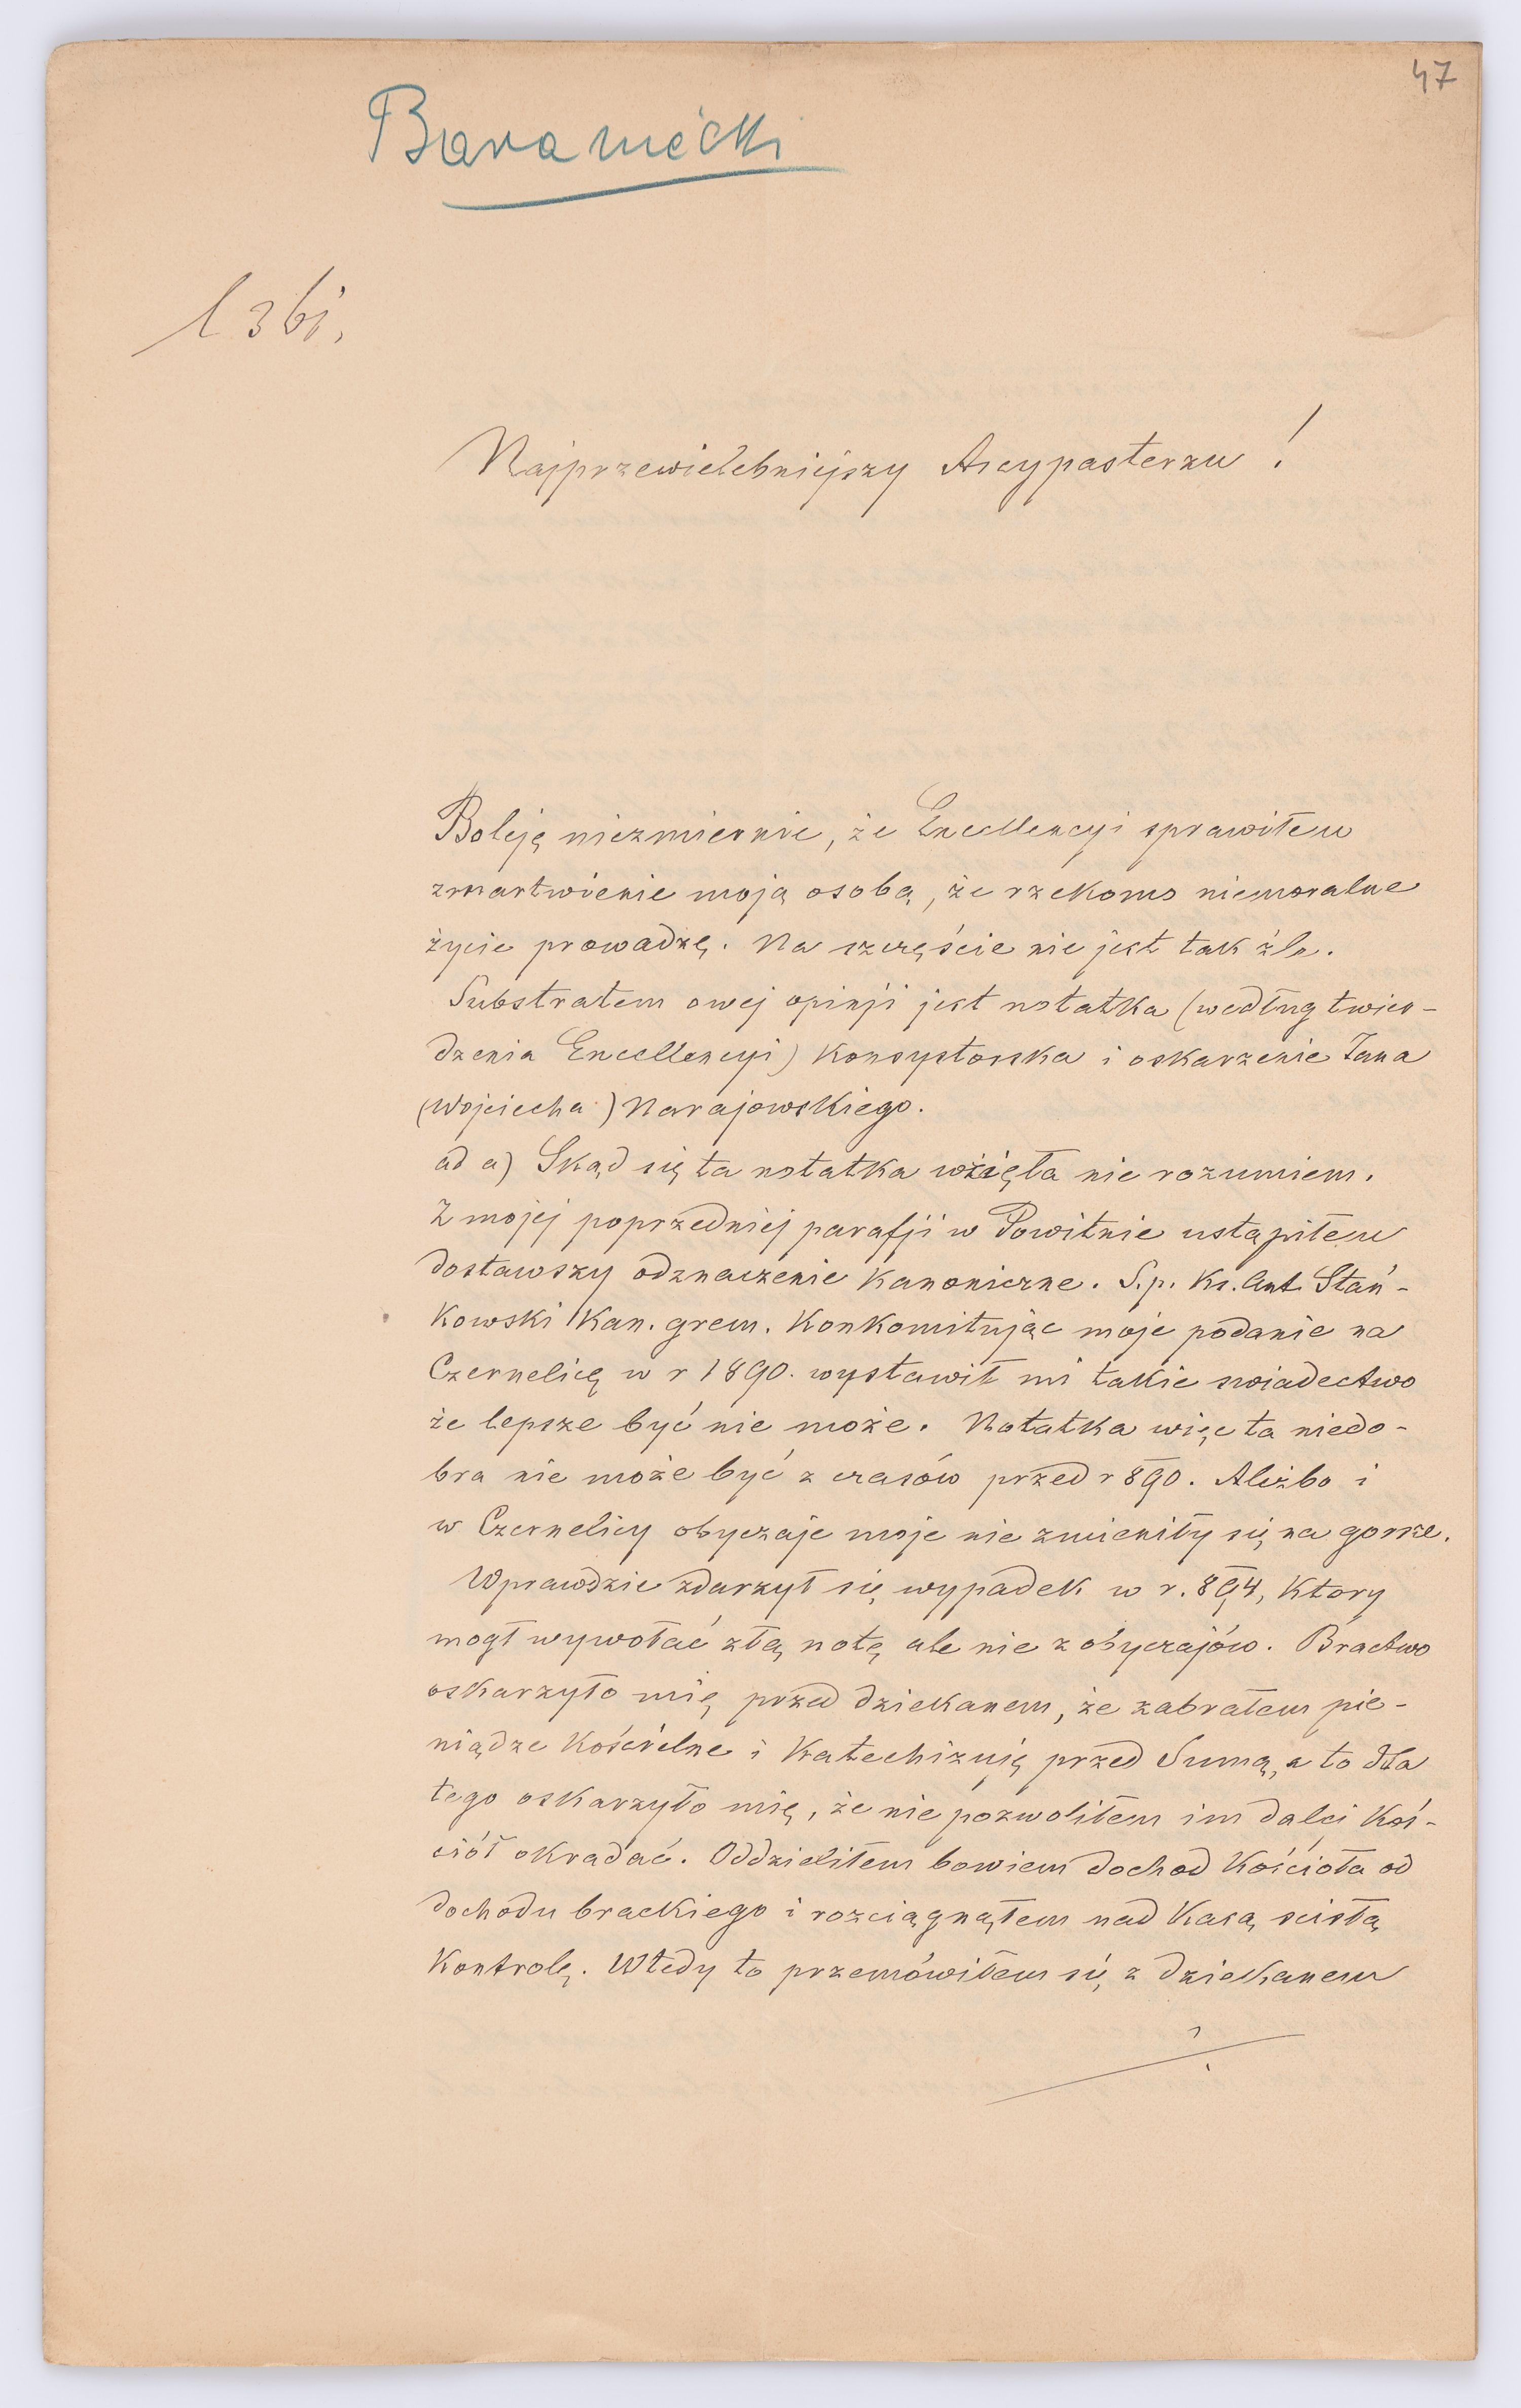 47
Baraniecki
Najprzewielebniejszy Arcypasterzu!
Boleję niezmiernie, że Excellencyi sprawiłem
zmartwienie moją osobą, że rzekomo niemoralne
życie prowadzę. Na szczęście nie jest tak źle.
Substratem owej opinji jest notatka (według twier-
dzenia Excellencyi) Konsystorska i oskarzenie Jana
(Wojciecha) Narajowskiego.
ad a) Skąd się ta notatka wzięła nie rozumiem.
Z mojej poprzedniej parafji w Powitnie ustąpiłem
dostawszy odznaczenie Kanoniczne. S.p. Ks. Ant. Stań-
kowski Kan. grem. Konkomitując moje podanie na
Czernelicę w r 1890. wystawił mi takie swiadectwo
że lepsze być nie może. Notatka więc ta niedo-
bra nie może być z czasów przed r 890. Aliżbo i
w Czernelicy obyczaje moje nie zmieniły się na gorsze.
Wprawdzie zdarzył się wypadek w r. 894, Ktory
mogł wywołać złą notę ale nie z obyczajów. Bractwo
oskarzyło mię przed dziekanem, że zabrałem pie-
niądze Kościelne i Katechizuję przed Sumą, a to dla
tego oskarzyło mię, że nie pozwoliłem im dalej Koś-
ciół okradać. Oddzieliłem bowiem dochod Kościoła od
dochodu brackiego i rozciągnąłem nad Kasą scisłą
Kontrolę. Wtedy to przemówiłem się z dziekanem
./.